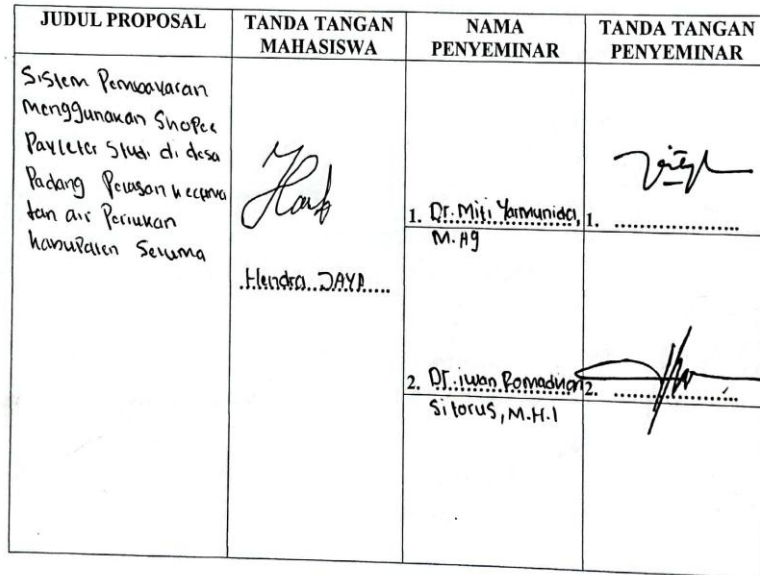 JUDUL PROPOSAL
TANDA TANGAN
MAHASISWA
NAMA
PENYEMINAR
TANDA TANGAN
PENYEMINAR
Sistem Pembayaran
menggunakan Shopee
Payleter Studi di desa
Padang Pelasan kecama
tan air Periukan
kabupaten Seluma
Hendra JAYA
1. Dr. Miti Yarmunida,
M.Ag
1. ....................
2. Dr. iwan Romadhon
Sitorus, M.H.I
2. ....................